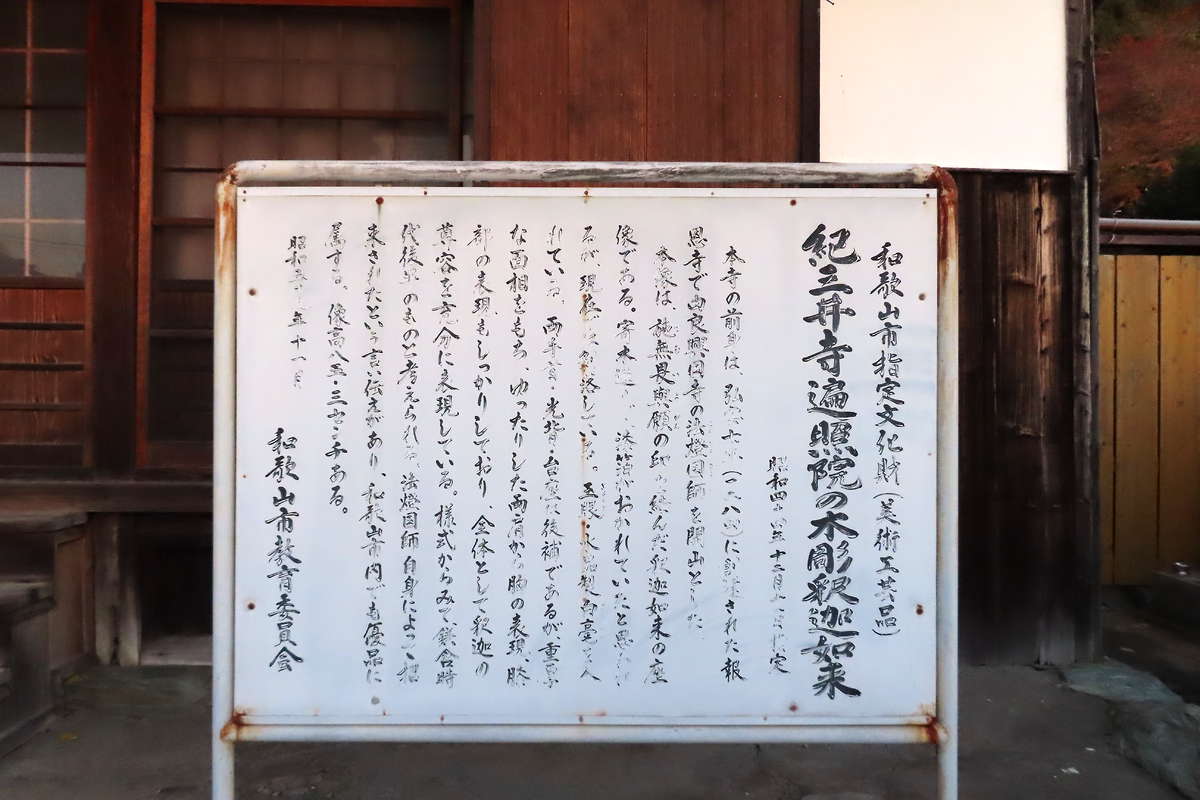 和歌山市指定文化財(美術工芸品)
紀三井寺遍照院の木彫釈迦如来
昭和四十四年十二月 指定
本寺の前身は、弘安七年(一二八四)に創建された報
恩寺で由良興国寺の法燈国師を開山とした。
本像は、施無畏與願の印を結んだ釈迦如来の座
像である。寄木造で、漆箔がおかれていたと思われ
るが現在は剥落している。玉眼・水晶製白毫を入
れている。両手首・光背・台座は後補であるが重厚
な面相をもち、ゆったりした両肩から胸の表現、膝
部の表現もしっかりしており、全体として釈迦の
尊容を充分に表現している。様式からみて鎌倉時
代後半のものと考えられる。法燈国師自身によって招
来されたという言い伝えがあり、和歌山市内でも優品に
属する。像高八五・三センチある。
昭和五十 年十一月
和歌山市教育委員会